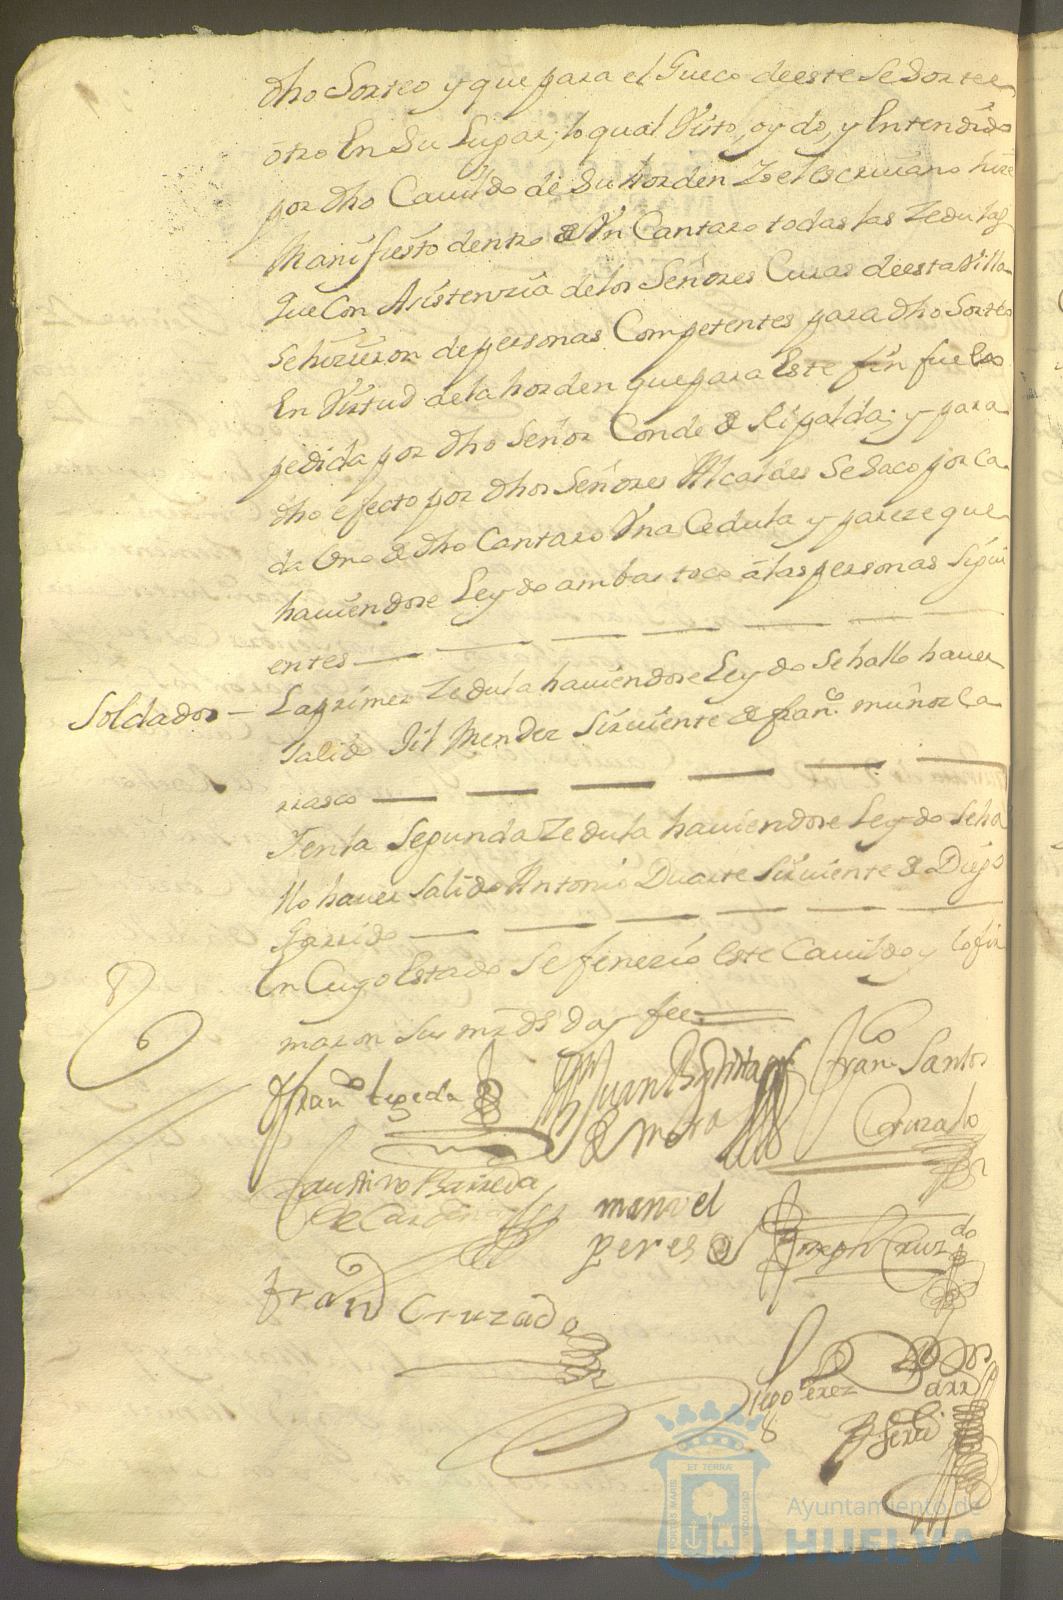 dho Sorteo y que para el Gueco de este Se Sortee
otro En Su Lugar; lo qual Visto, oydo, y Entendido
por dho Cavildo de Su Horden Yo el escrivano hize
Manifiesto dentro de Vn Cantaro todas las Zedulas
que Con Asistenzia de los Señores Curas de esta Villa
Se hizieron de personas Competentes para dho Sorteo
En Virtud de la horden que para Este fin fue ex
pedida por dho Señor Conde de Ripalda; y para
dho efecto por dhos Señores Alcaldes Se Saco por ca
da Uno de dho Cantaro Vna Cedula y pareze que
haviendose Leydo ambas toco â las personas Sigui
entes
Soldados - La primer Zedula haviendose Leydo Se hallo haver
Salido Jil Mendez Sirviente de Fran.co muñoz Ca
rrasco
Y en la Segunda Zedula haviendose Leydo Seha
llo haver Salido Antonio Duarte Sirviente de Diego
Garrido
En Cuyo Estado Se fenezio este Cavildo y lo fir
maron Sus mrds doy fee
Fran.co texeda
Juan Bptista
de Mora
Fran.co Santos
Cruzado
Faustino Barreda
de Cardenas
manuel
peres
Joseph Cruz.do
Fran.co Cruzado
Diego Perez
FORTUS MARIS ET TERRÆ CUSTODIA
Ayuntamiento de
HUELVA